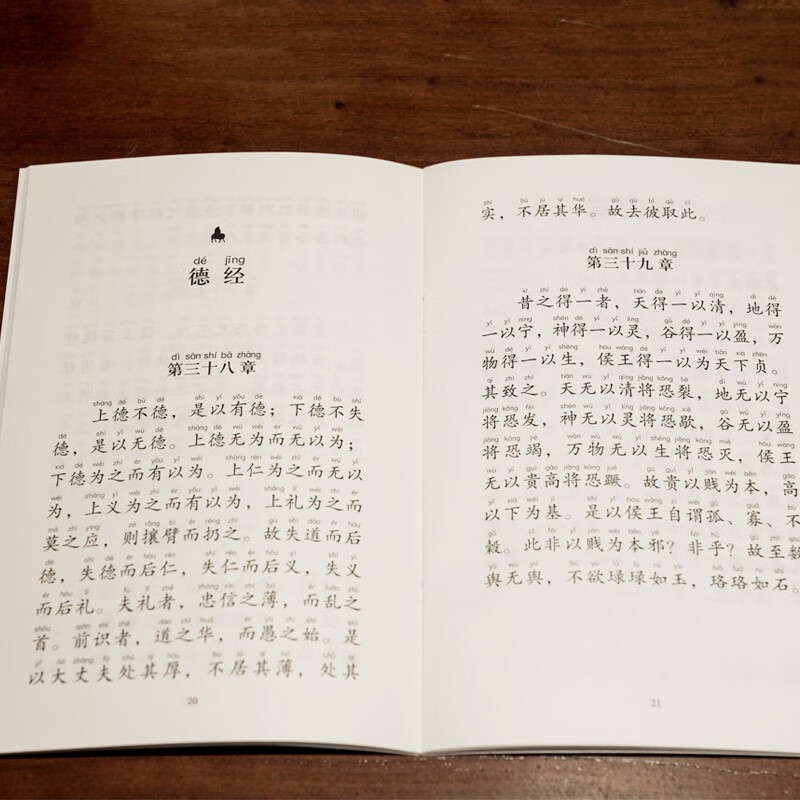 dé jīng
德 经
dì sān shí bā zhāng
第三十八章
上德不德，是以有德；下德不失
德，是以无德。上德无为而无以为；
下德为之而有以为。上仁为之而无以
为，上义为之而有以为，上礼为之而
莫之应，则攘臂而扔之。故失道而后
德，失德而后仁，失仁而后义，失义
而后礼。夫礼者，忠信之薄，而乱之
首。前识者，道之华，而愚之始。是
以大丈夫处其厚，不居其薄，处其
20
实，不居其华。故去彼取此。
dì sān shí jiǔ zhāng
第三十九章
昔之得一者，天得一以清，地得
一以宁，神得一以灵，谷得一以盈，万
物得一以生，侯王得一以为天下贞。
其致之。天无以清将恐裂，地无以宁
将恐发，神无以灵将恐歇，谷无以盈
将恐竭，万物无以生将恐灭，侯王
无以贵高将恐蹶。故贵以贱为本，高
以下为基。是以侯王自谓孤、寡、不
穀。此非以贱为本邪？非乎？故至数
舆无舆，不欲琭琭如玉，珞珞如石。
21